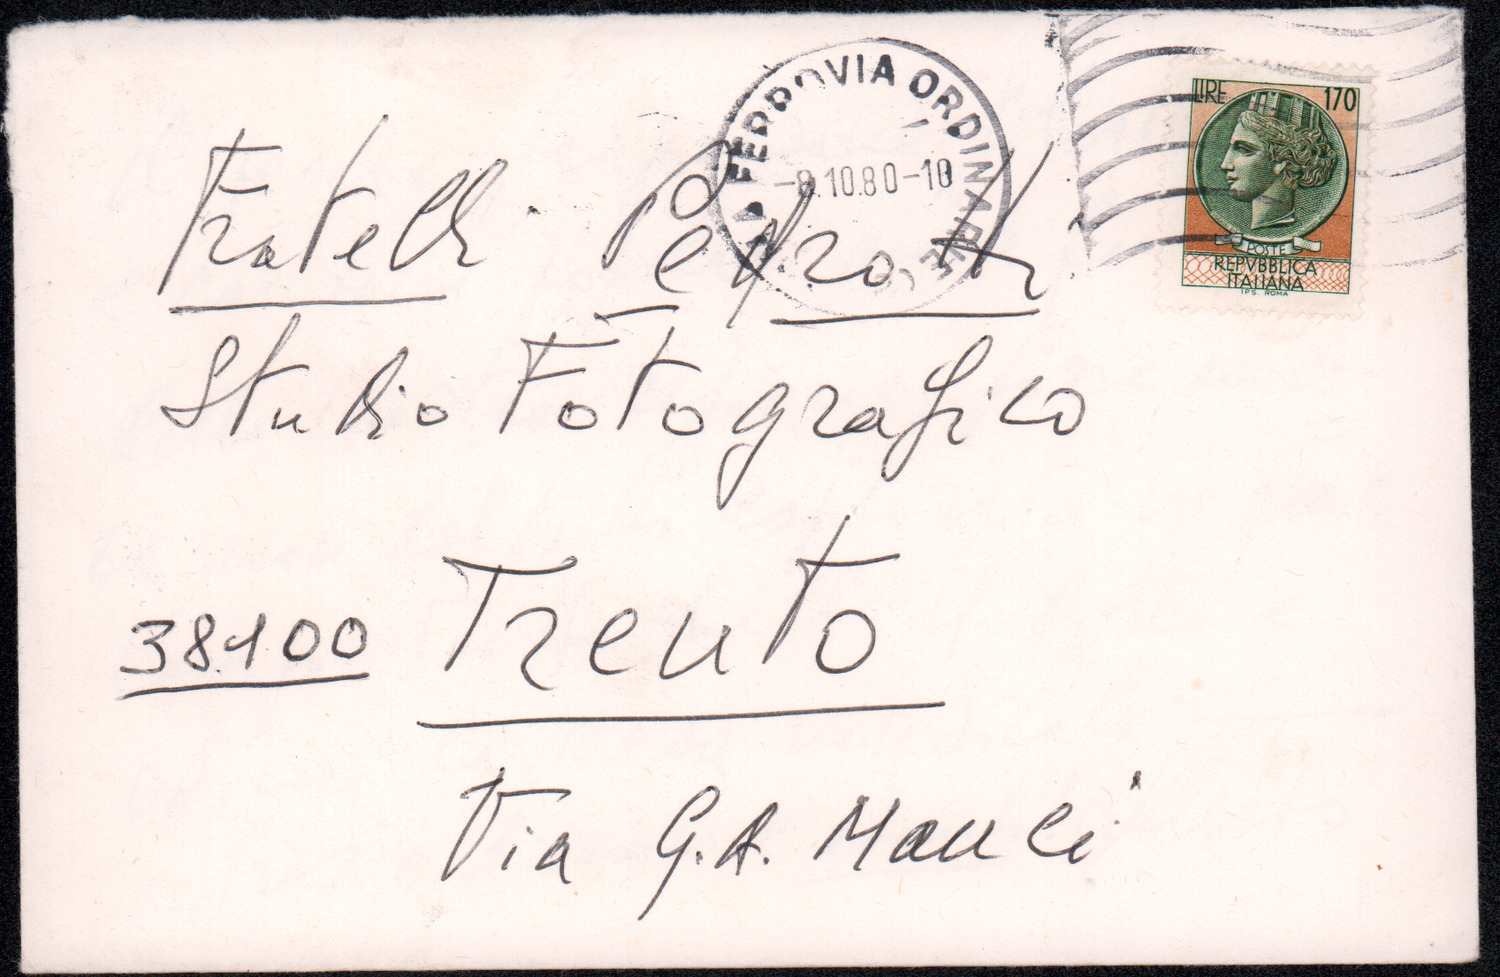 FERROVIA ORDINARIE
-8.10.80-10
LIRE 170
POSTE
REPVBBLICA
ITALIANA
I.P.S. ROMA
Fratelli Pedrotti
Studio Fotografico
38100 Trento
Via G.A. Manci